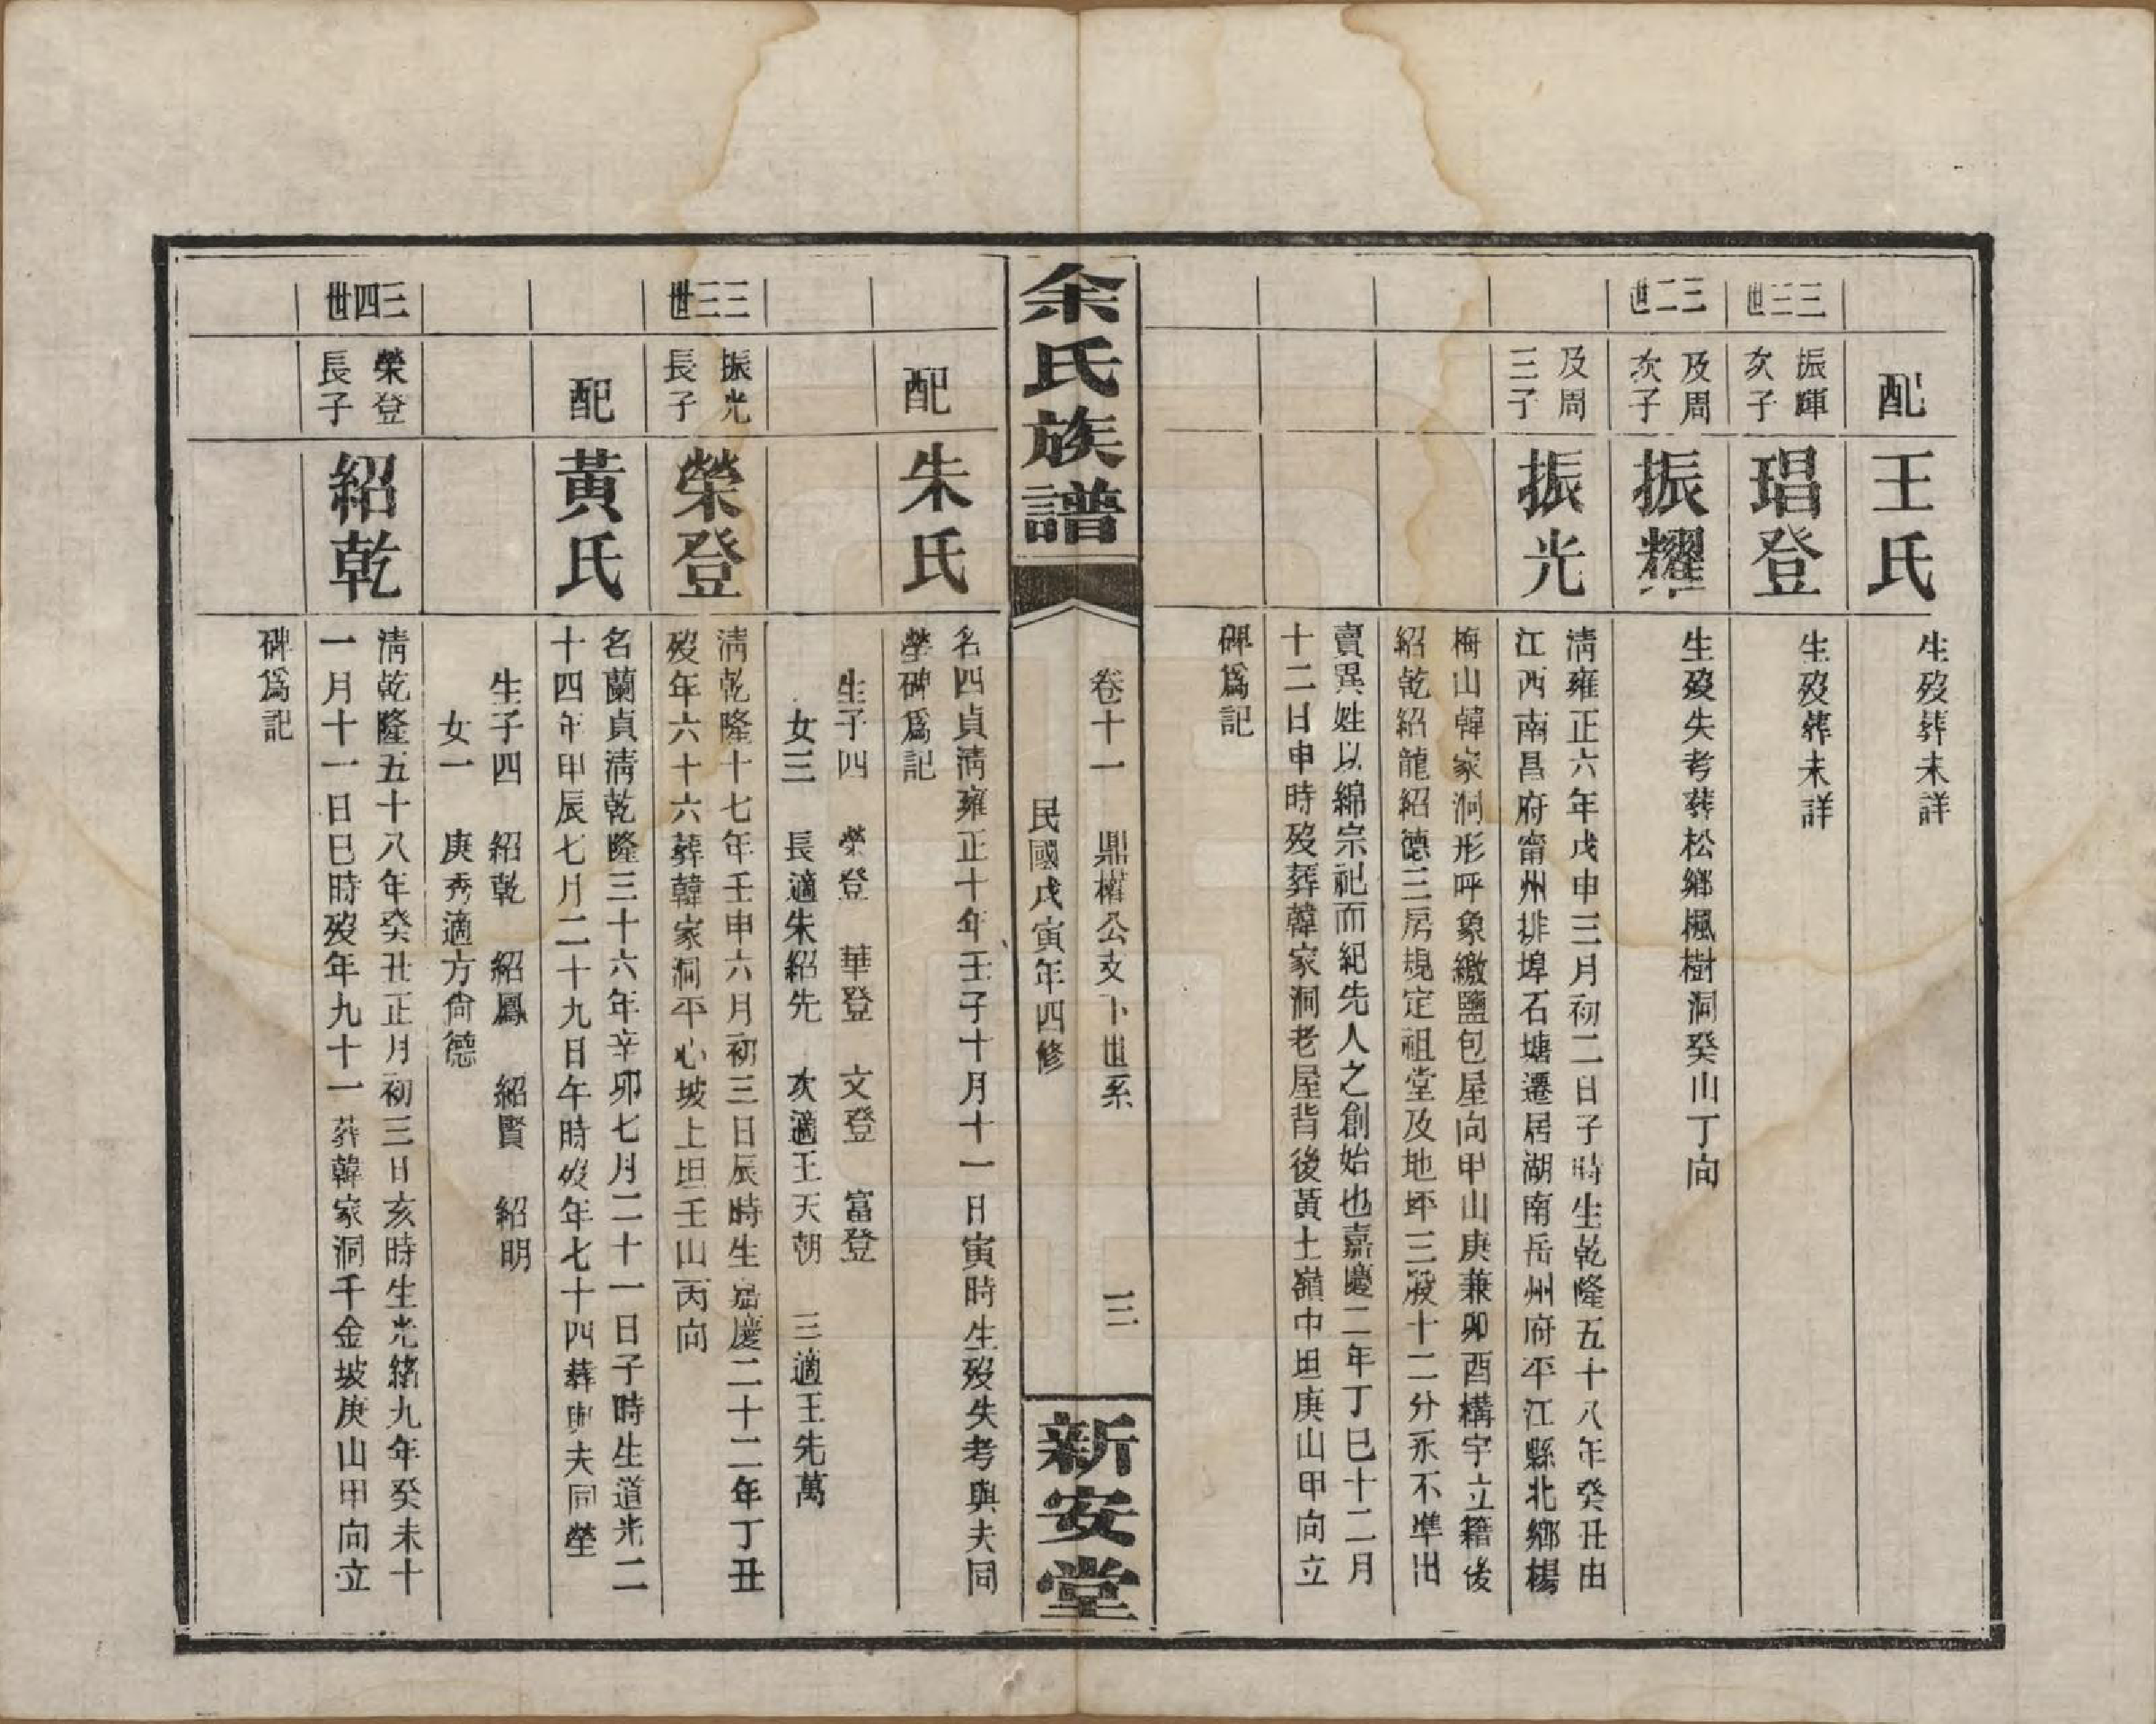 配
王氏
生歿葬未詳
三三世
振輝
次子
琩登
生歿葬未詳
三二世
及周
次子
振耀
生歿失考葬松鄉楓樹洞癸山丁向
及周
三子
振光
淸雍正六年戊申三月初二日子時生乾隆五十八年癸丑由
江西南昌府甯州排埠石塘遷居湖南岳州府平江縣北鄉楊
梅山韓家洞形呼象繳鹽包屋向甲山庚兼卯酉構宇立籍後
紹乾紹龍紹德三房規定祖堂及地坪三股十二分永不準出
賣異姓以綿宗祀而紀先人之創始也嘉慶二年丁巳十二月
十二日申時歿葬韓家洞老屋背後黃土嶺中坦庚山甲向立
碑爲記
余氏族譜
卷十一 鼎權公支下世系 三
民國戊寅年四修
新安堂
配
朱氏
名四貞淸雍正十年壬子十月十一日寅時生歿失考與夫同
塋碑爲記
生子四 榮登 華登 文登 富登
女三 長適朱紹先 次適王天朝 三適王先萬
三三世
振光
長子
榮登
淸乾隆十七年壬申六月初三日辰時生嘉慶二十二年丁丑
歿年六十六葬韓家洞平心坡上坦壬山丙向
配
黃氏
名蘭貞淸乾隆三十六年辛卯七月二十一日子時生道光二
十四年甲辰七月二十九日午時歿年七十四葬與夫同塋
生子四 紹乾 紹鳳 紹賢 紹明
女一 庚秀適方尙德
三四世
榮登
長子
紹乾
淸乾隆五十八年癸丑正月初三日亥時生光緒九年癸未十
一月十一日巳時歿年九十一葬韓家洞千金坡庚山甲向立
碑爲記